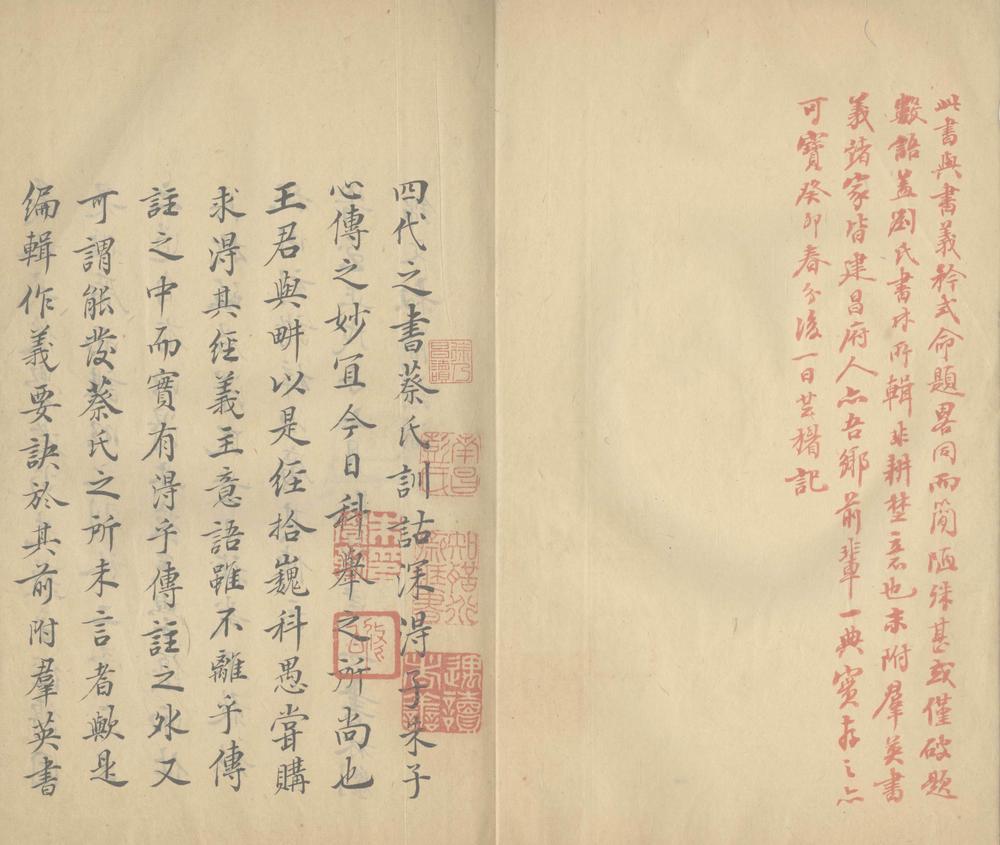 此書與書義矜式命題畧同而簡陋殊甚或僅破題
數語蓋劉氏書坊所輯非耕埜意也末附羣英書
義諸家皆建昌府人亦吾鄉前輩一典實存之亦
可寶癸卯春分後一日芸楣記
四代之書蔡氏訓詁深得子朱子
心傳之妙宜今日科舉之所尚也
王君與畊以是經拾巍科愚嘗購
求得其經義主意語雖不離乎傳
註之中而實有得乎傳註之外又
可謂能發蔡氏之所未言者歟是
編輯作義要訣於其前附羣英書
南昌彭氏
知聖道齋藏書
遇讀者善